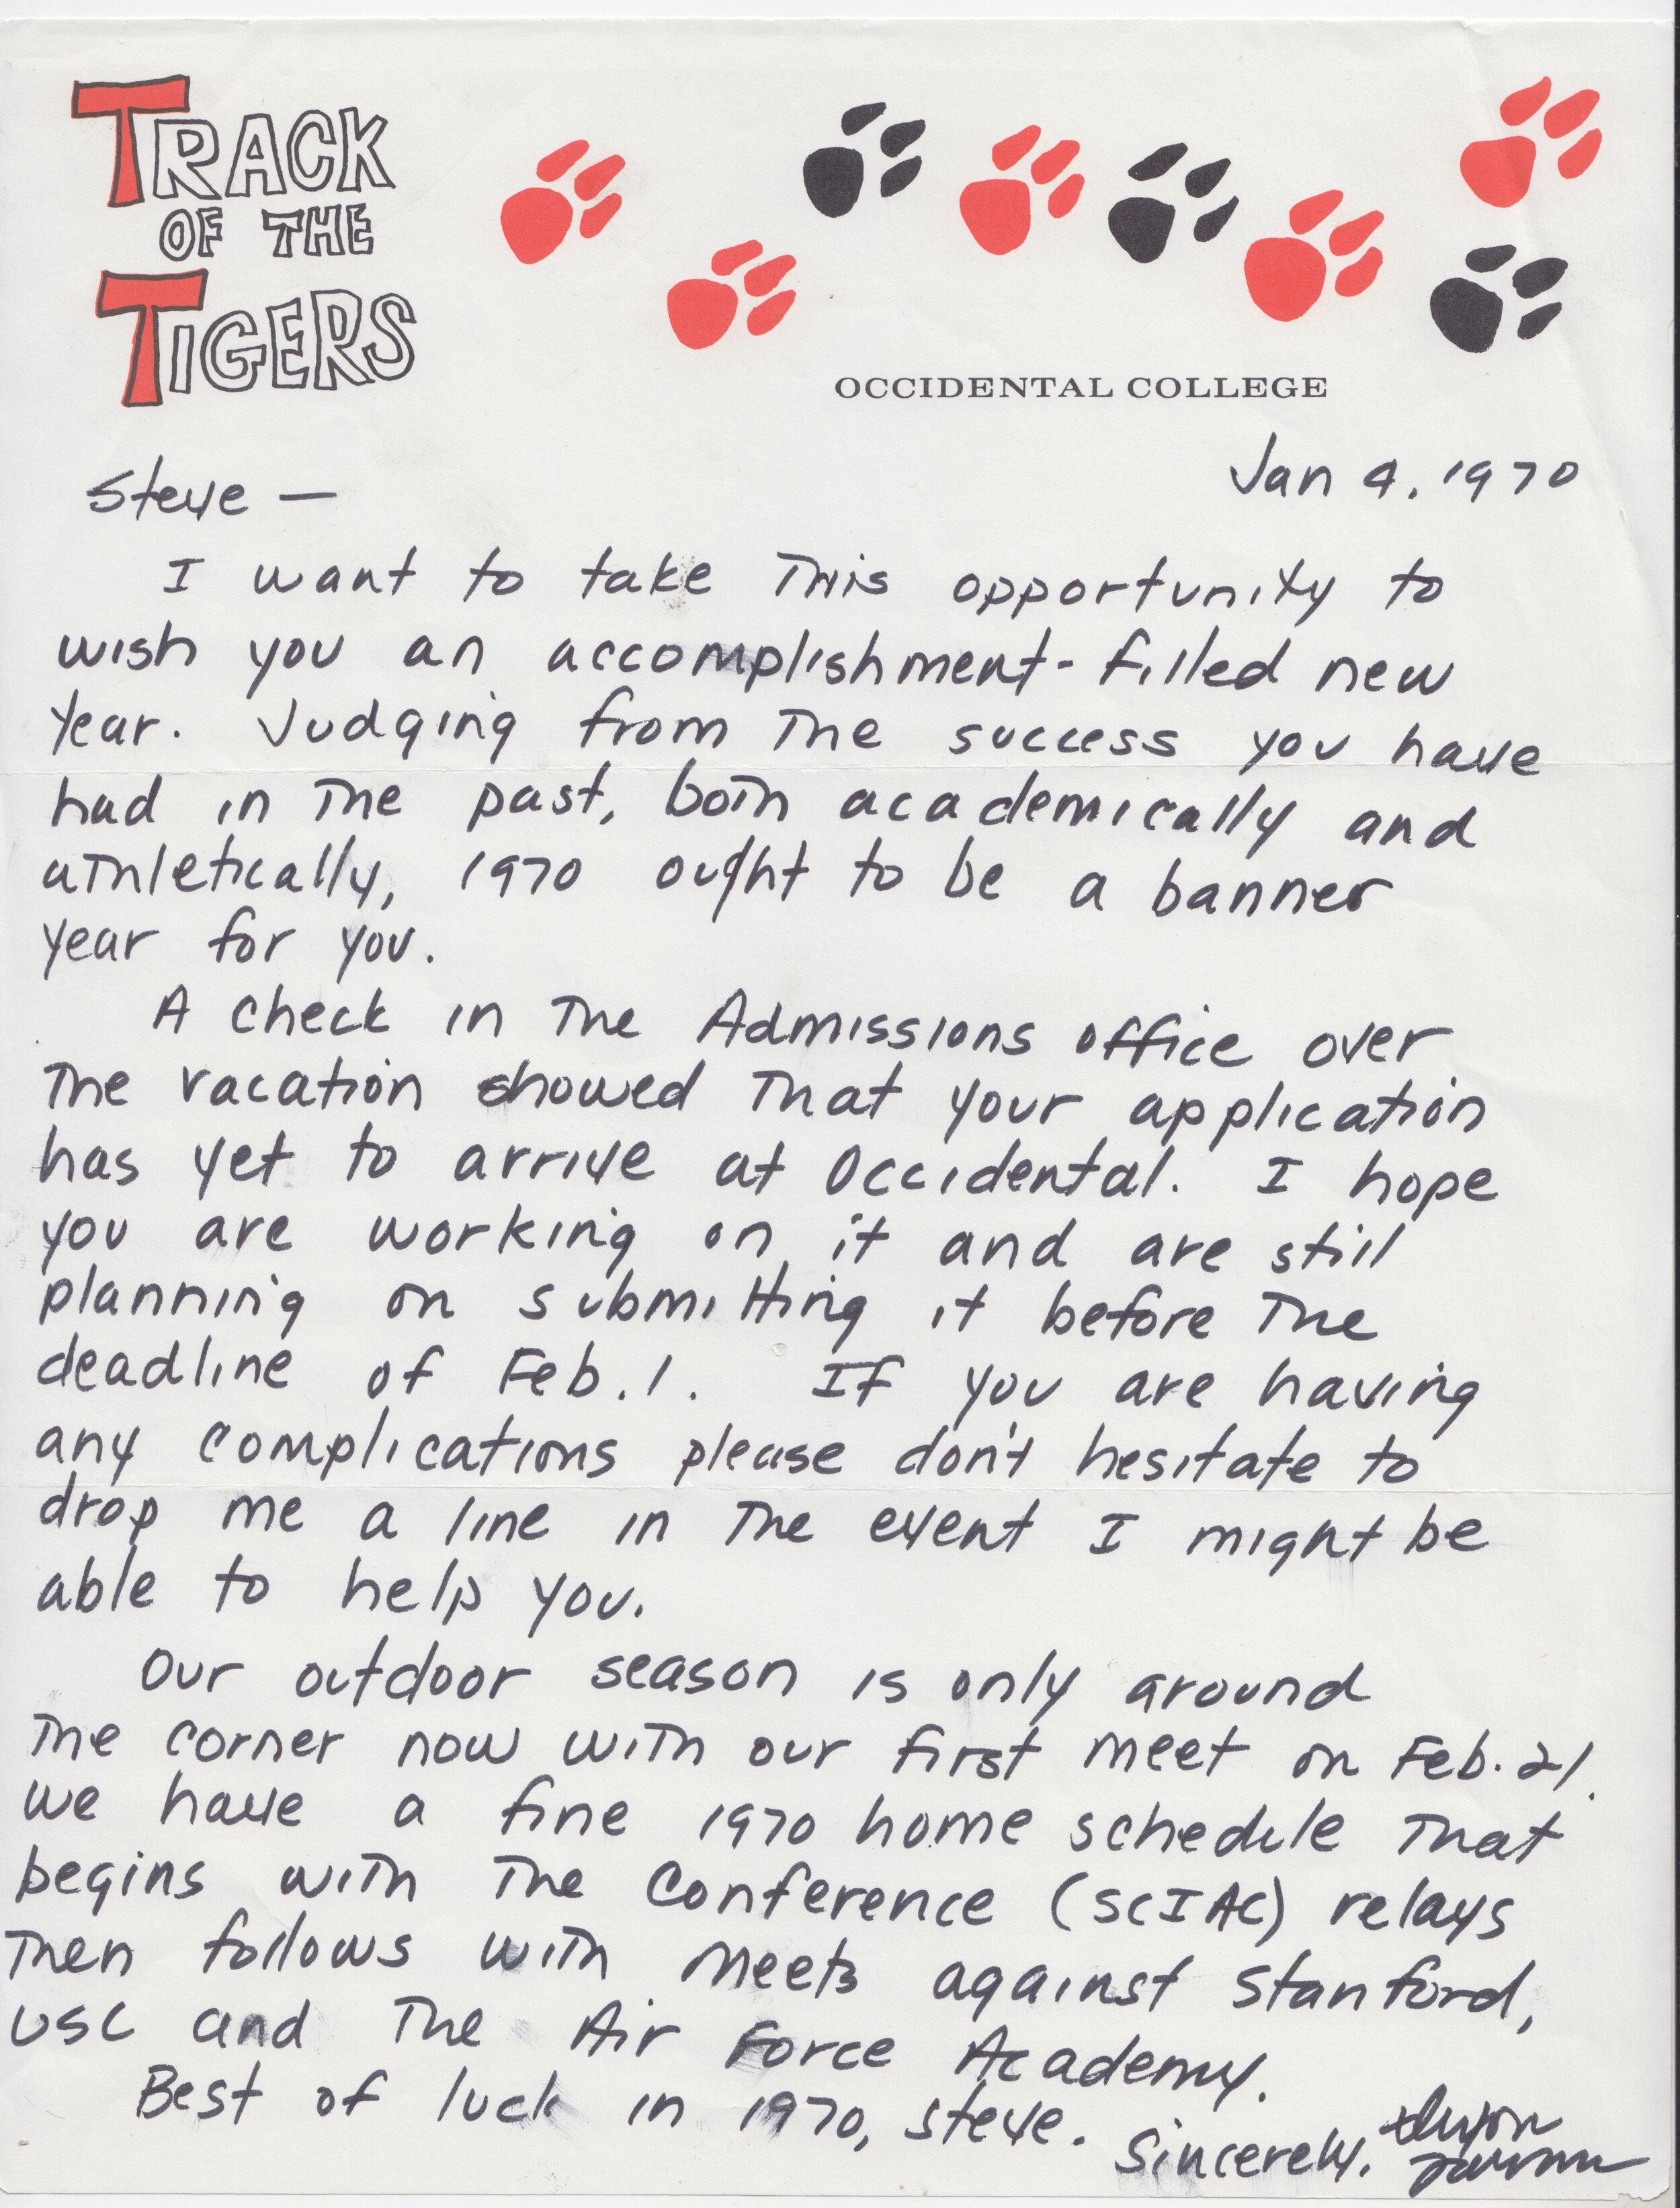 TRACK
OF THE
TIGERS
OCCIDENTAL COLLEGE
Jan 4, 1970
Steve —
I want to take this opportunity to
wish you an accomplishment-filled new
year. Judging from the success you have
had in the past, both academically and
athletically, 1970 ought to be a banner
year for you.
A check in the Admissions office over
the vacation showed that your application
has yet to arrive at Occidental. I hope
you are working on it and are still
planning on submitting it before the
deadline of Feb. 1. If you are having
any complications please don't hesitate to
drop me a line in the event I might be
able to help you.
Our outdoor season is only around
the corner now with our first meet on Feb. 21.
We have a fine 1970 home schedule that
begins with the Conference (SCIAC) relays
then follows with meets against Stanford,
USC and the Air Force Academy.
Best of luck in 1970, Steve.
Sincerely,